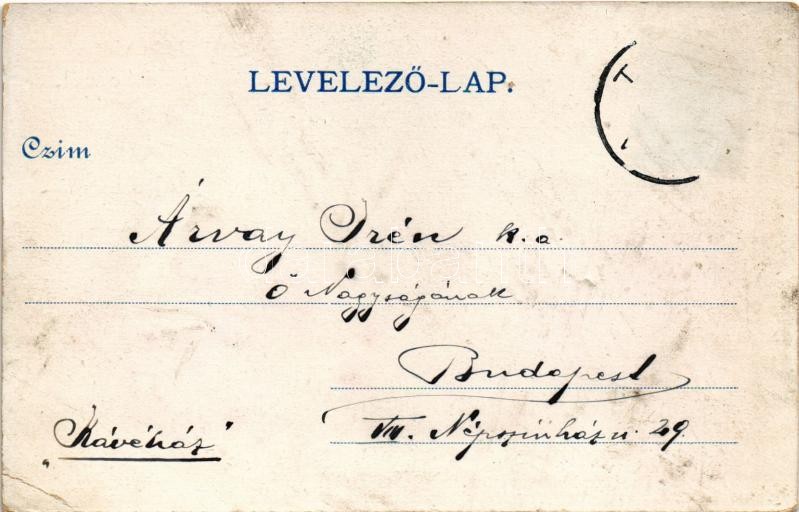 LEVELEZŐ-LAP.
Czim
Árvay Irén k.a.
Ő Nagyságának
Budapest
VIII. Népszinház u. 29.
"Kávéház"